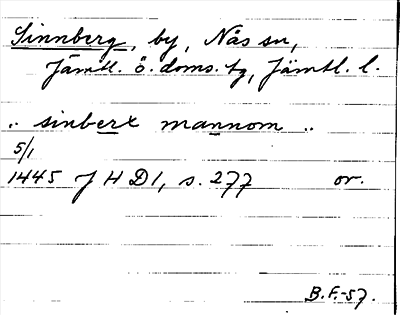 Sinnberg, by, Näs sn,
Jämtl. ö. doms. tg, Jämtl. l.
.. sinberx mannom ..
5/1
1445 JHD1, s. 277 or.
B.F.-57.